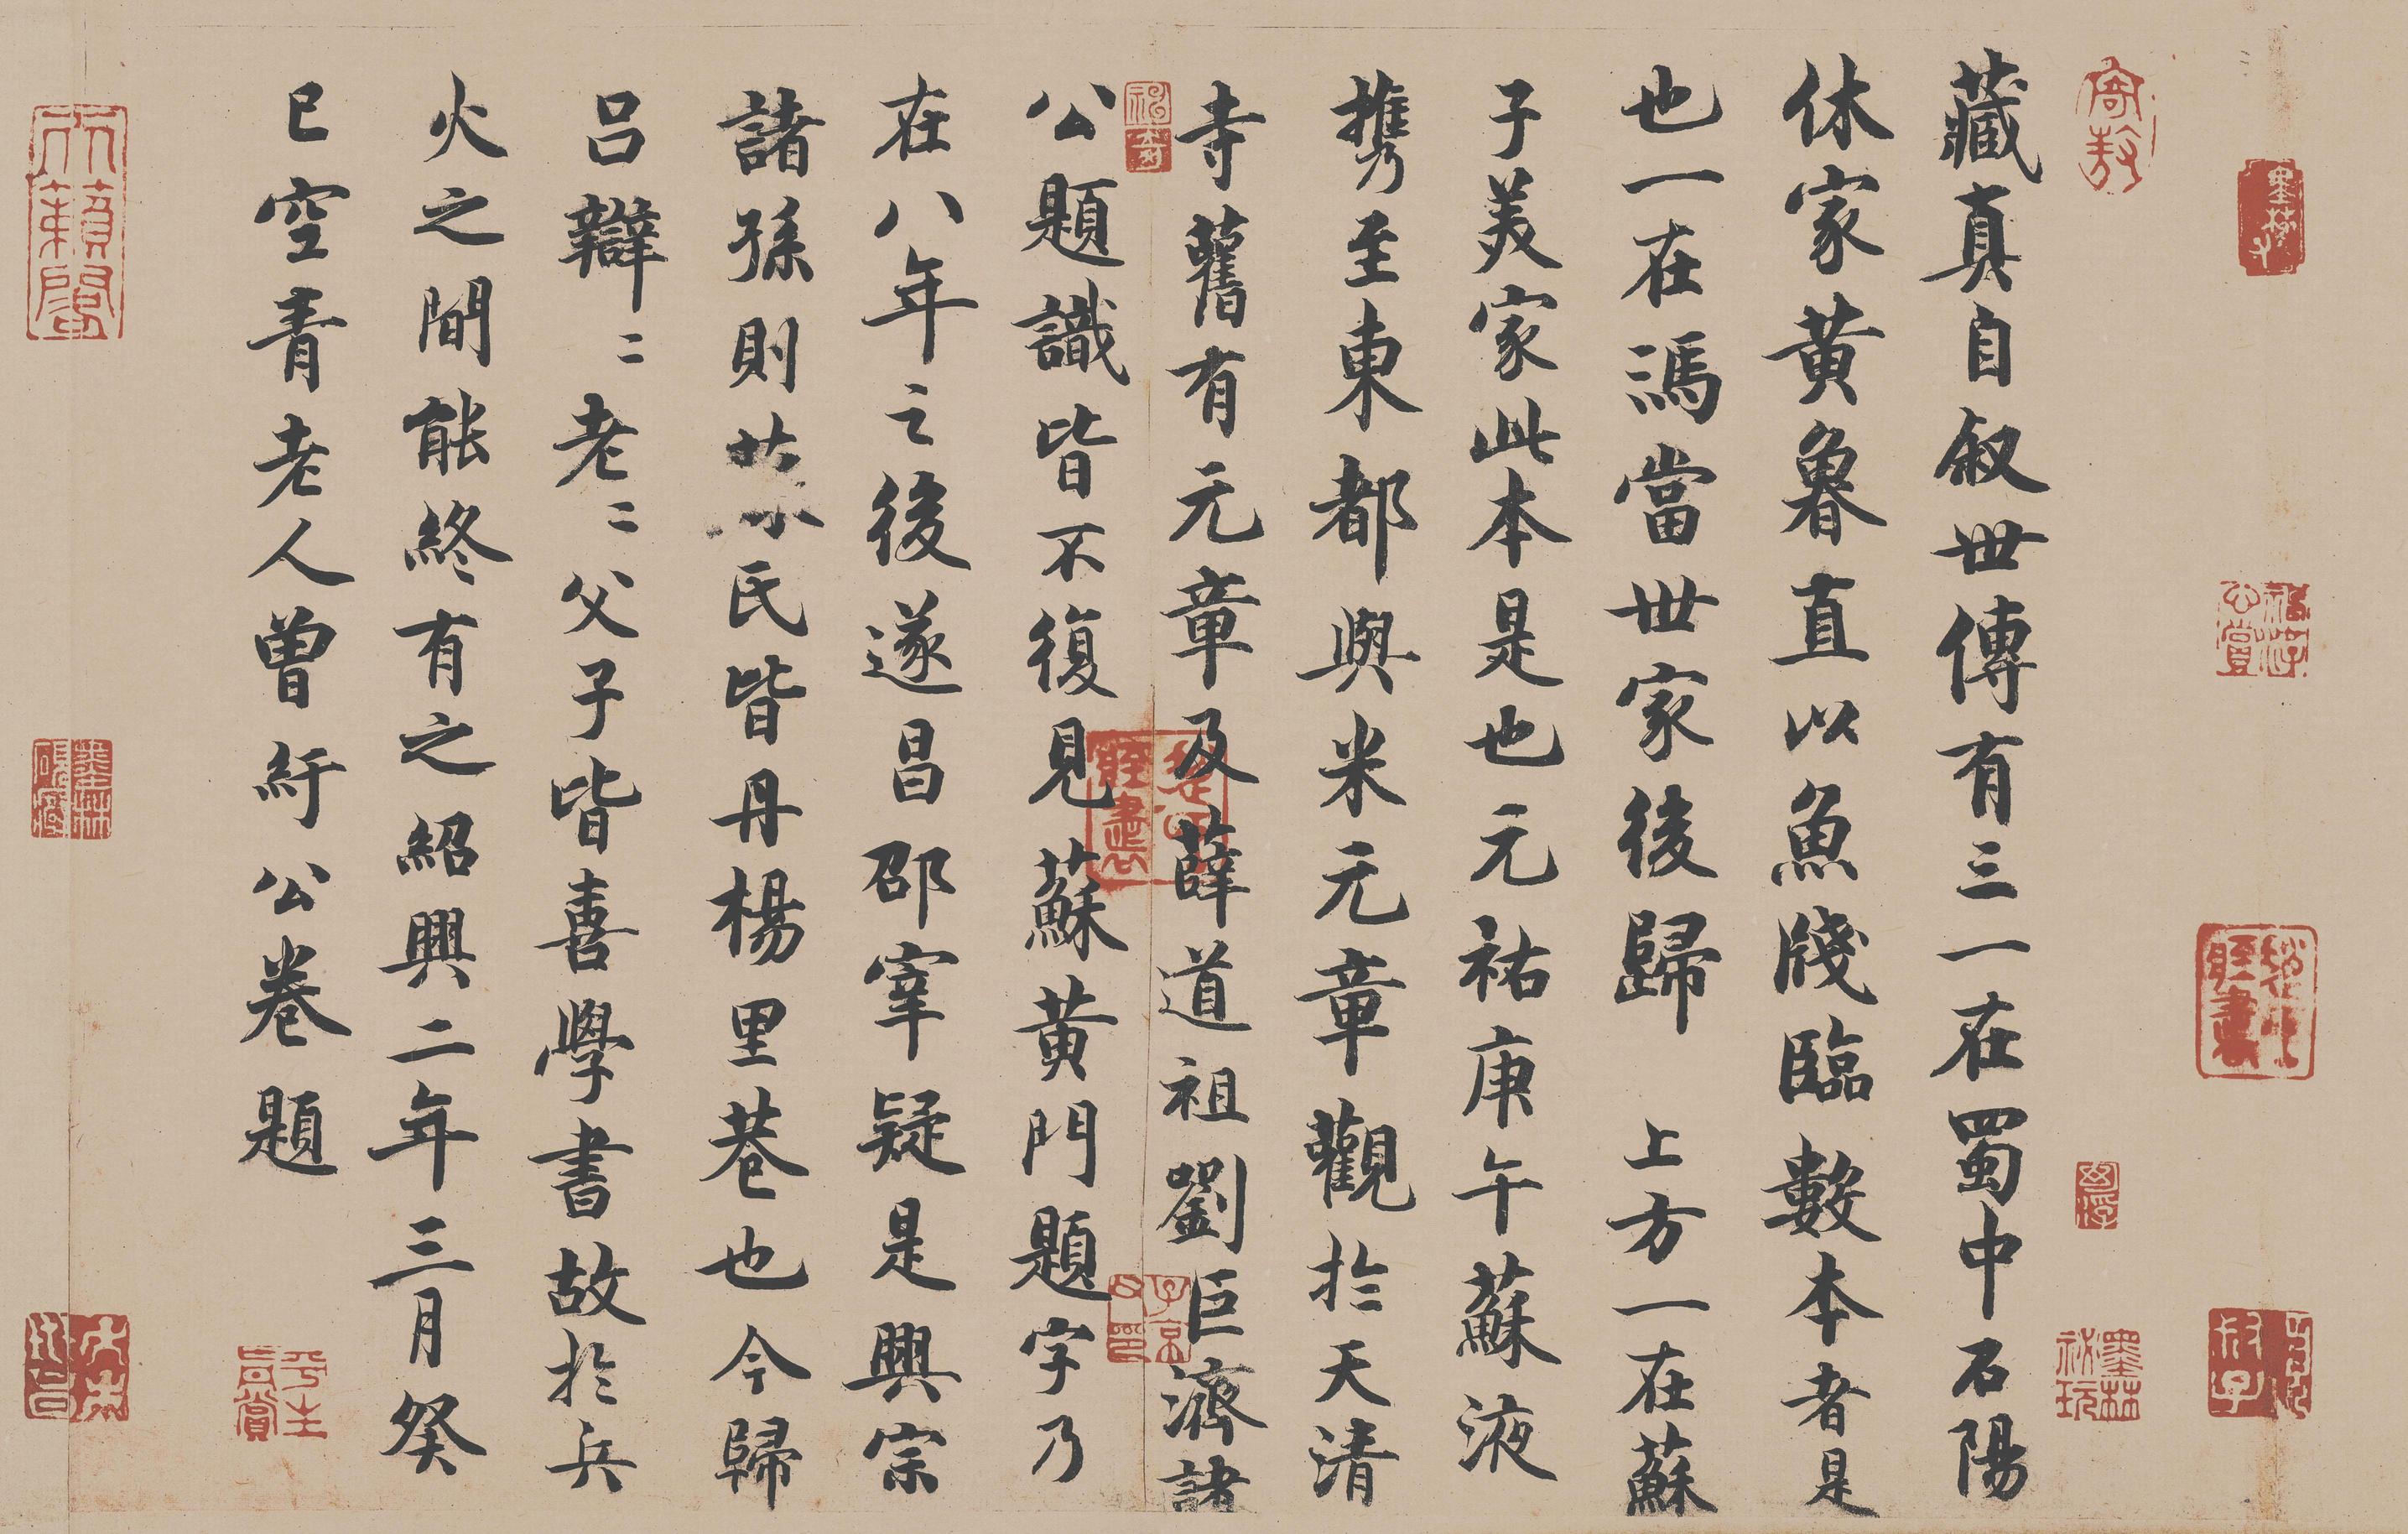 藏真自叙世傳有三一在蜀中石陽
休家黄魯直以魚牋臨數本者是
也一在馮當世家後歸 上方一在蘇
子美家此本是也元祐庚午蘇液
携至東都與米元章觀於天清
寺舊有元章及薛道祖劉巨濟諸
公題識皆不復見蘇黄門題字乃
在八年之後遂昌邵宰疑是興宗
諸孫則蘇氏皆丹楊里巷也今歸
吕辯二老二父子皆喜學書故於兵
火之間能終有之紹興二年三月癸
巳空青老人曾紆公卷題